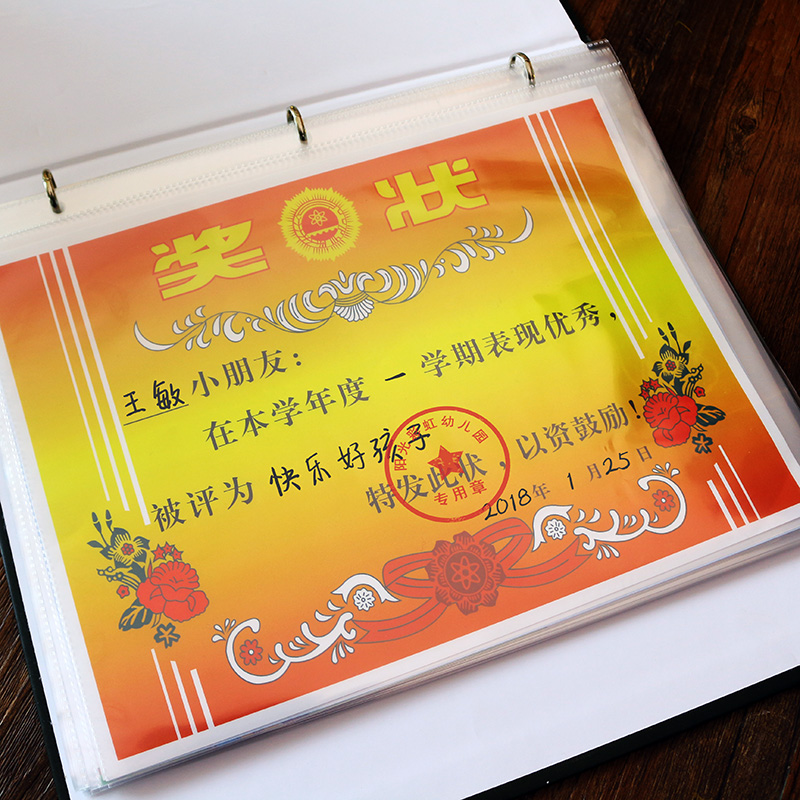 奖状
王敏小朋友：
在本学年度 一 学期表现优秀，
被评为 快乐好孩子
特发此状，以资鼓励！
阳光彩虹幼儿园
专用章
2018年 1 月25日